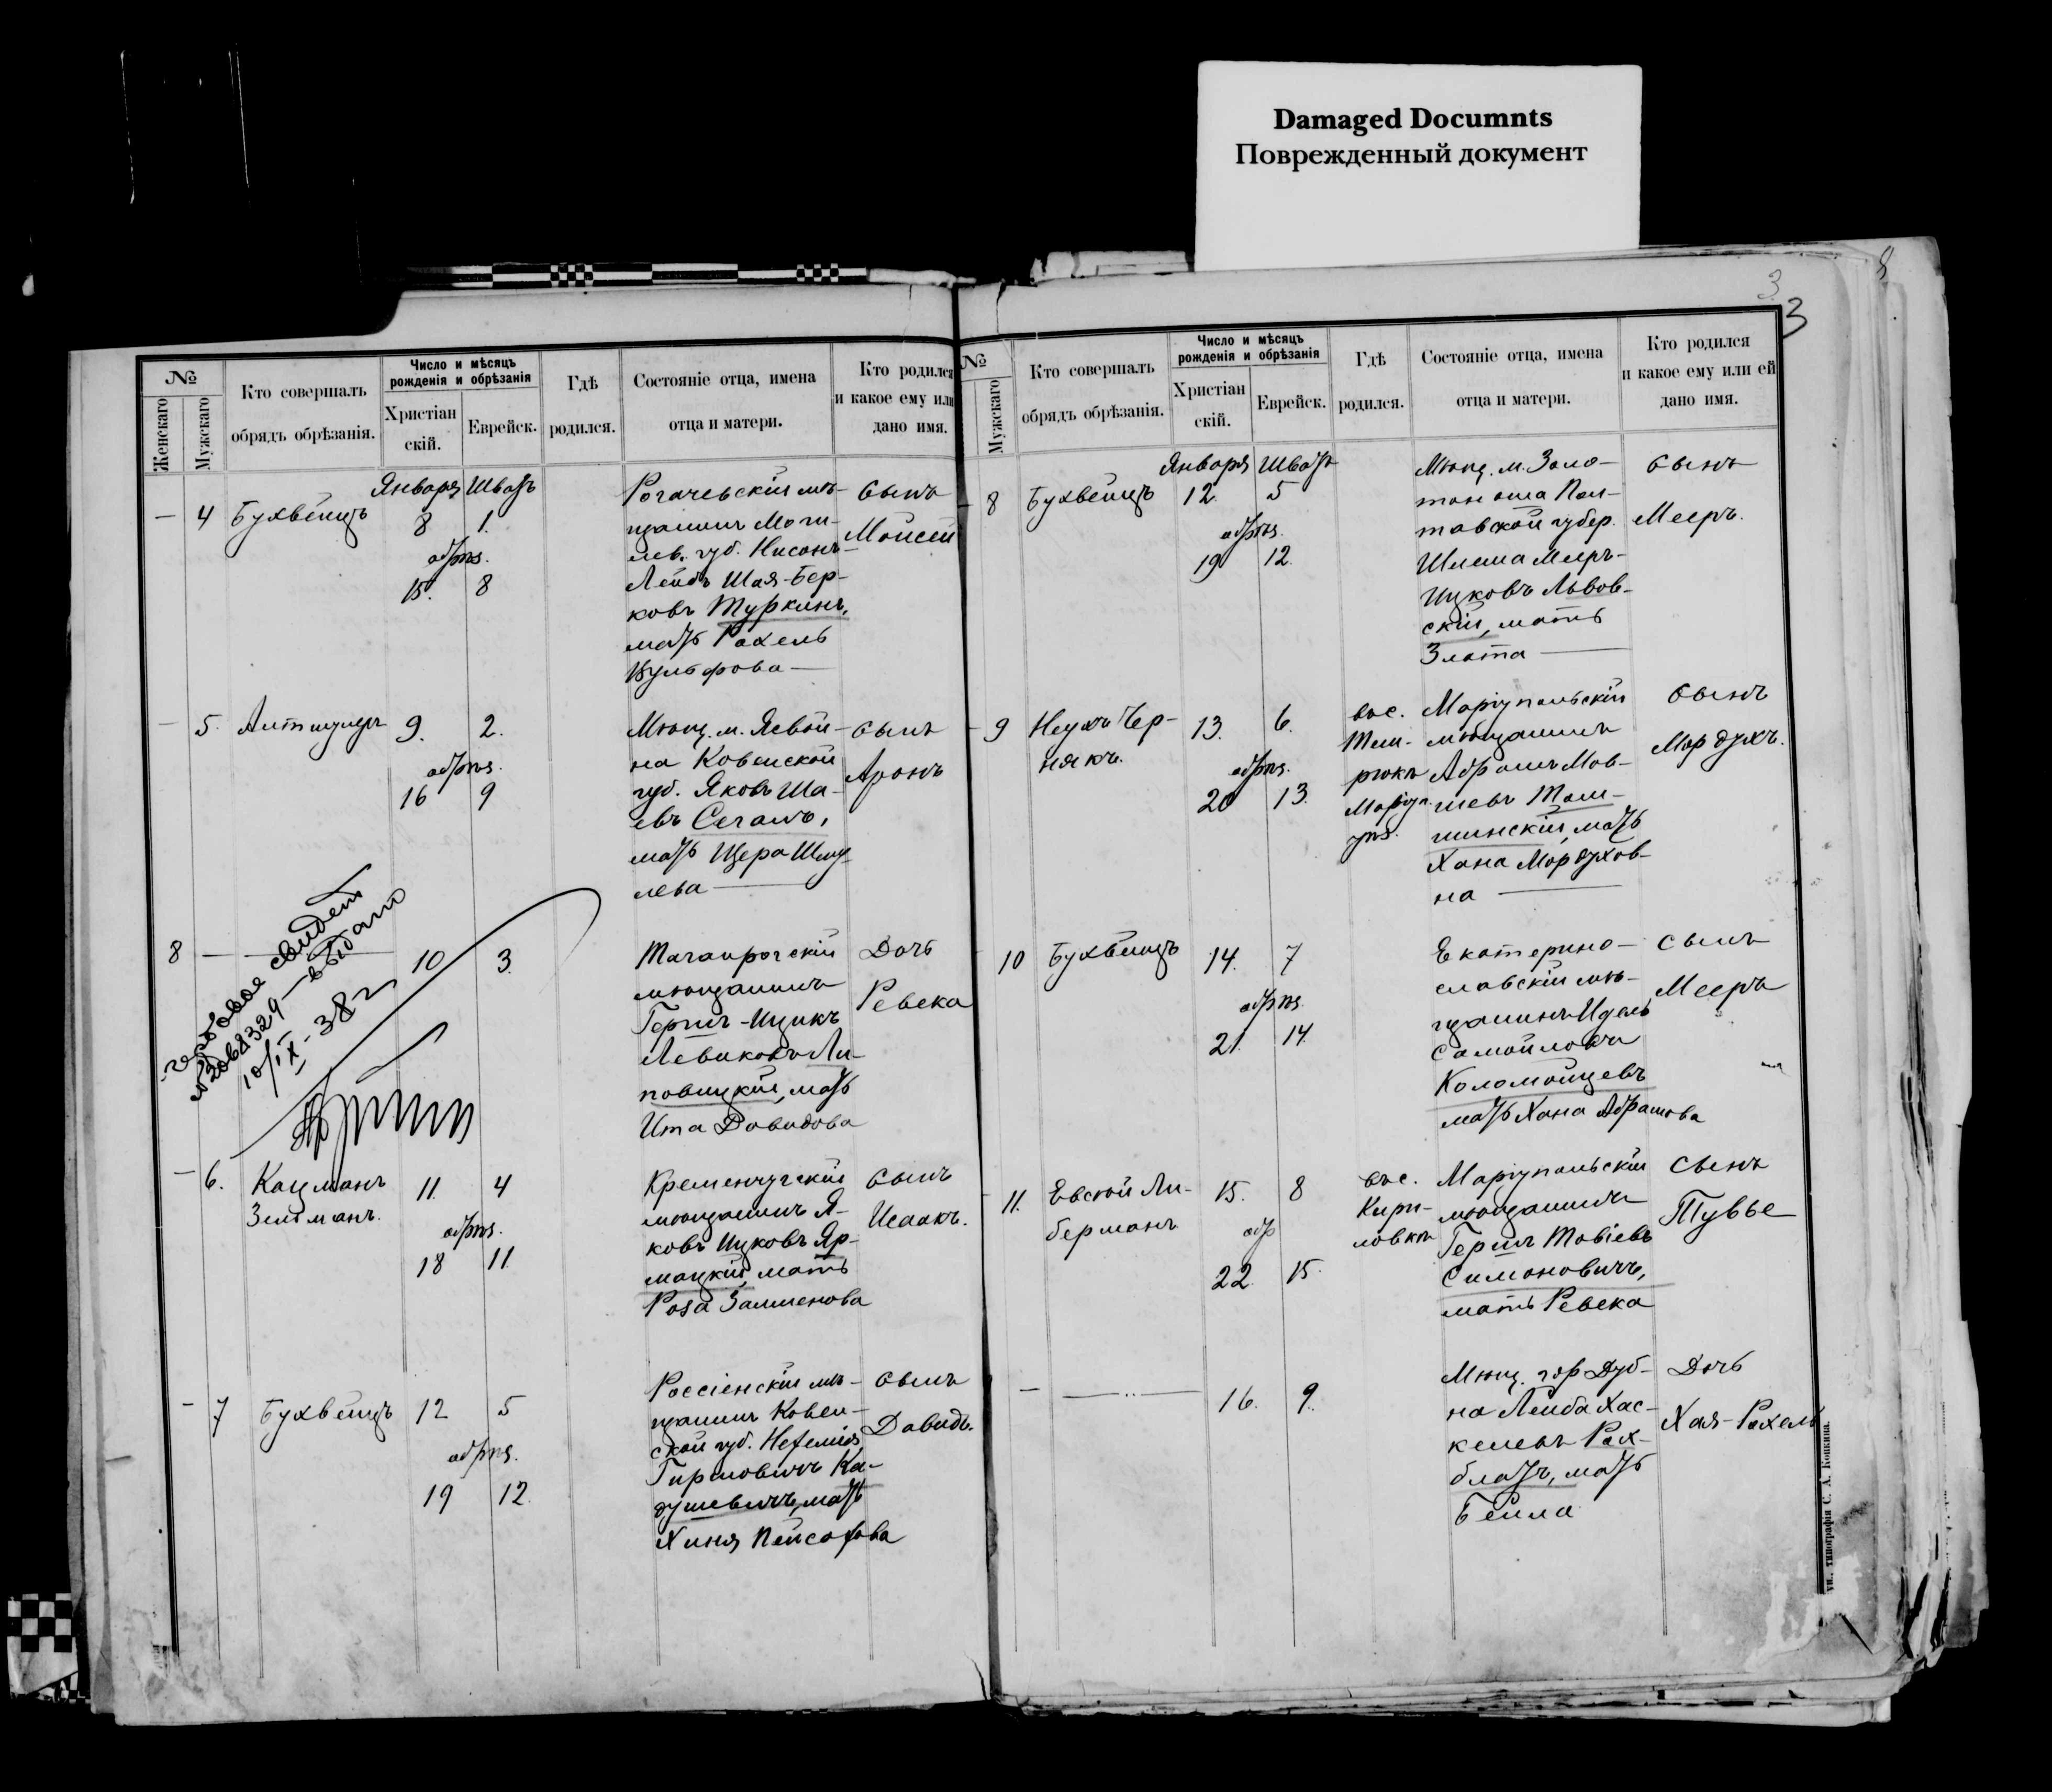 Damaged Documnts
Поврежденный документ
3
3
№
Женскаго
Мужскаго
Кто совершалъ
обрядъ обрѣзанія.
Число и мѣсяцъ
рожденія и обрѣзанія
Христіан
скій.
Еврейск.
Гдѣ
родился.
Состояніе отца, имена
отца и матери.
Кто родился
и какое ему или
дано имя.
Января Шватъ
— 4 Бухвейцъ 8 1.
обрѣз.
15. 8
Рогачевскій мѣ-
щанинъ Моги-
лев. губ. Нисонъ-
Лейбъ Шая-Бер-
ковъ Туркинъ,
мать Рохель
Вульфова —
Сынъ
Мойсей
— 5. Альтшулеръ 9. 2.
обрѣз.
16 9
Мѣщ. м. Явой-
на Ковенской
губ. Яковъ Ша-
евъ Сегалъ,
мать Щера Шму-
лева —
Сынъ
Аронъ
8 — — 10 3.
Таганрогскій
мѣщанинъ
Гершъ-Ицикъ
Левиковъ Ли-
повецкій, мать
Ита Давидова
Дочь
Ревека
гербовое свидет
№2068329 — выдано
10/IX-38 г
— 6. Кацманъ 11. 4
Зельманъ.
обрѣз.
18 11
Кременчугскій
мѣщанинъ Я-
ковъ Ицковъ Яр-
мацкій, мать
Роза Залменова
Сынъ
Исаакъ.
- 7 Бухвейцъ 12 5
обрѣз.
19 12.
Россіенскій мѣ-
щанинъ Ковен-
ской губ. Нефемія
Гиршовичъ Ка-
душевичъ, мать
Хиня Пейсахова
Сынъ
Давидъ.
№
Мужскаго
Кто совершалъ
обрядъ обрѣзанія.
Число и мѣсяцъ
рожденія и обрѣзанія
Христіан
скій.
Еврейск.
Гдѣ
родился.
Состояніе отца, имена
отца и матери.
Кто родился
и какое ему или ей
дано имя.
Января Шватъ
8 Бухвейцъ 12. 5
обрѣз.
19 12.
Мѣщ. м. Золо-
тоноша Пол-
тавской губер.
Шлема Мееръ-
Ицковъ Львов-
скій, мать
Злата —
Сынъ
Мееръ.
9 Неухъ Чер-
някъ.
13. 6.
обрѣз.
20 13.
вос.
Тем-
рюкъ
Маріуп.
уѣз.
Маріупольскій
мѣщанинъ
Абрамъ Мов-
шевъ Там-
шинскій, мать
Хана Мордухов-
на —
Сынъ
Мордухъ.
10 Бухвейцъ 14. 7
обрѣз
21. 14.
Екатерино-
славскій мѣ-
щанинъ Идель
Самойловъ
Коломойцевъ
мать Хана Абрамова
Сынъ
Мееръ
11. Евсѣй Ли-
берманъ
15. 8
обр
22. 15.
вос.
Кири-
ловка
Маріупольскій
мѣщанинъ
Гершъ Товіевъ
Симоновичъ,
мать Ревека
Сынъ
Тувье
— — 16. 9.
Мѣщ. гор Дуб-
на Лейба Хас-
келевъ Рах-
блатъ, мать
Бейла
Дочь
Хая-Рохель
типографія С. А. Копкина.